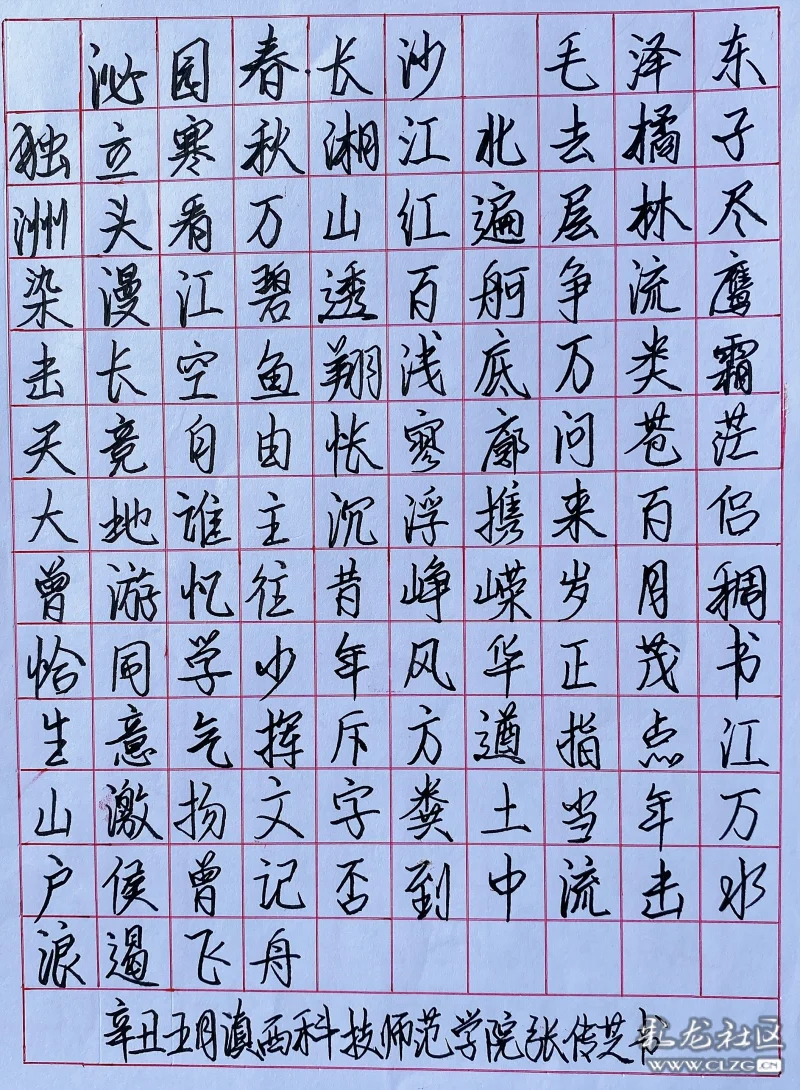 沁园春·长沙 毛泽东
独立寒秋湘江北去橘子
洲头看万山红遍层林尽
染漫江碧透百舸争流鹰
击长空鱼翔浅底万类霜
天竞自由怅寥廓问苍茫
大地谁主沉浮携来百侣
曾游忆往昔峥嵘岁月稠
恰同学少年风华正茂书
生意气挥斥方遒指点江
山激扬文字粪土当年万
户侯曾记否到中流击水
浪遏飞舟
辛丑五月滇西科技师范学院张传芝书
龙社区
WWW.CLZG.CN